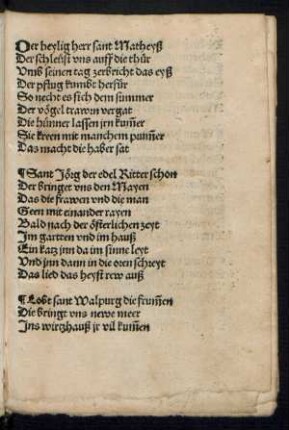 Der heylig herr sant Matheyß
Der schleüst vns auff die thür
Vmb seinen tag zerbricht das eyß
Der pflug kumbt herfür
So necht es sich dem summer
Der vögel trawrn vergat
Die hünner lassen jrn kum̃er
Sie kreen mit manchem pum̃er
Das macht die haber sat
¶ Sant Jörg der edel Ritter schon
Der bringet vns den Mayen
Das die frawen vnd die man
Geen mit einander rayen
Bald nach der österlichen zeyt
Jm gartten vnd im hauß
Ein katz jnn da im sinne leyt
Vnd jnn dann in die oren schreyt
Das lied das heyst rew auß
¶ Lobt sant Walpurg die frum̃en
Die bringt vns newe meer
Jns wirtzhauß jr vil kum̃en